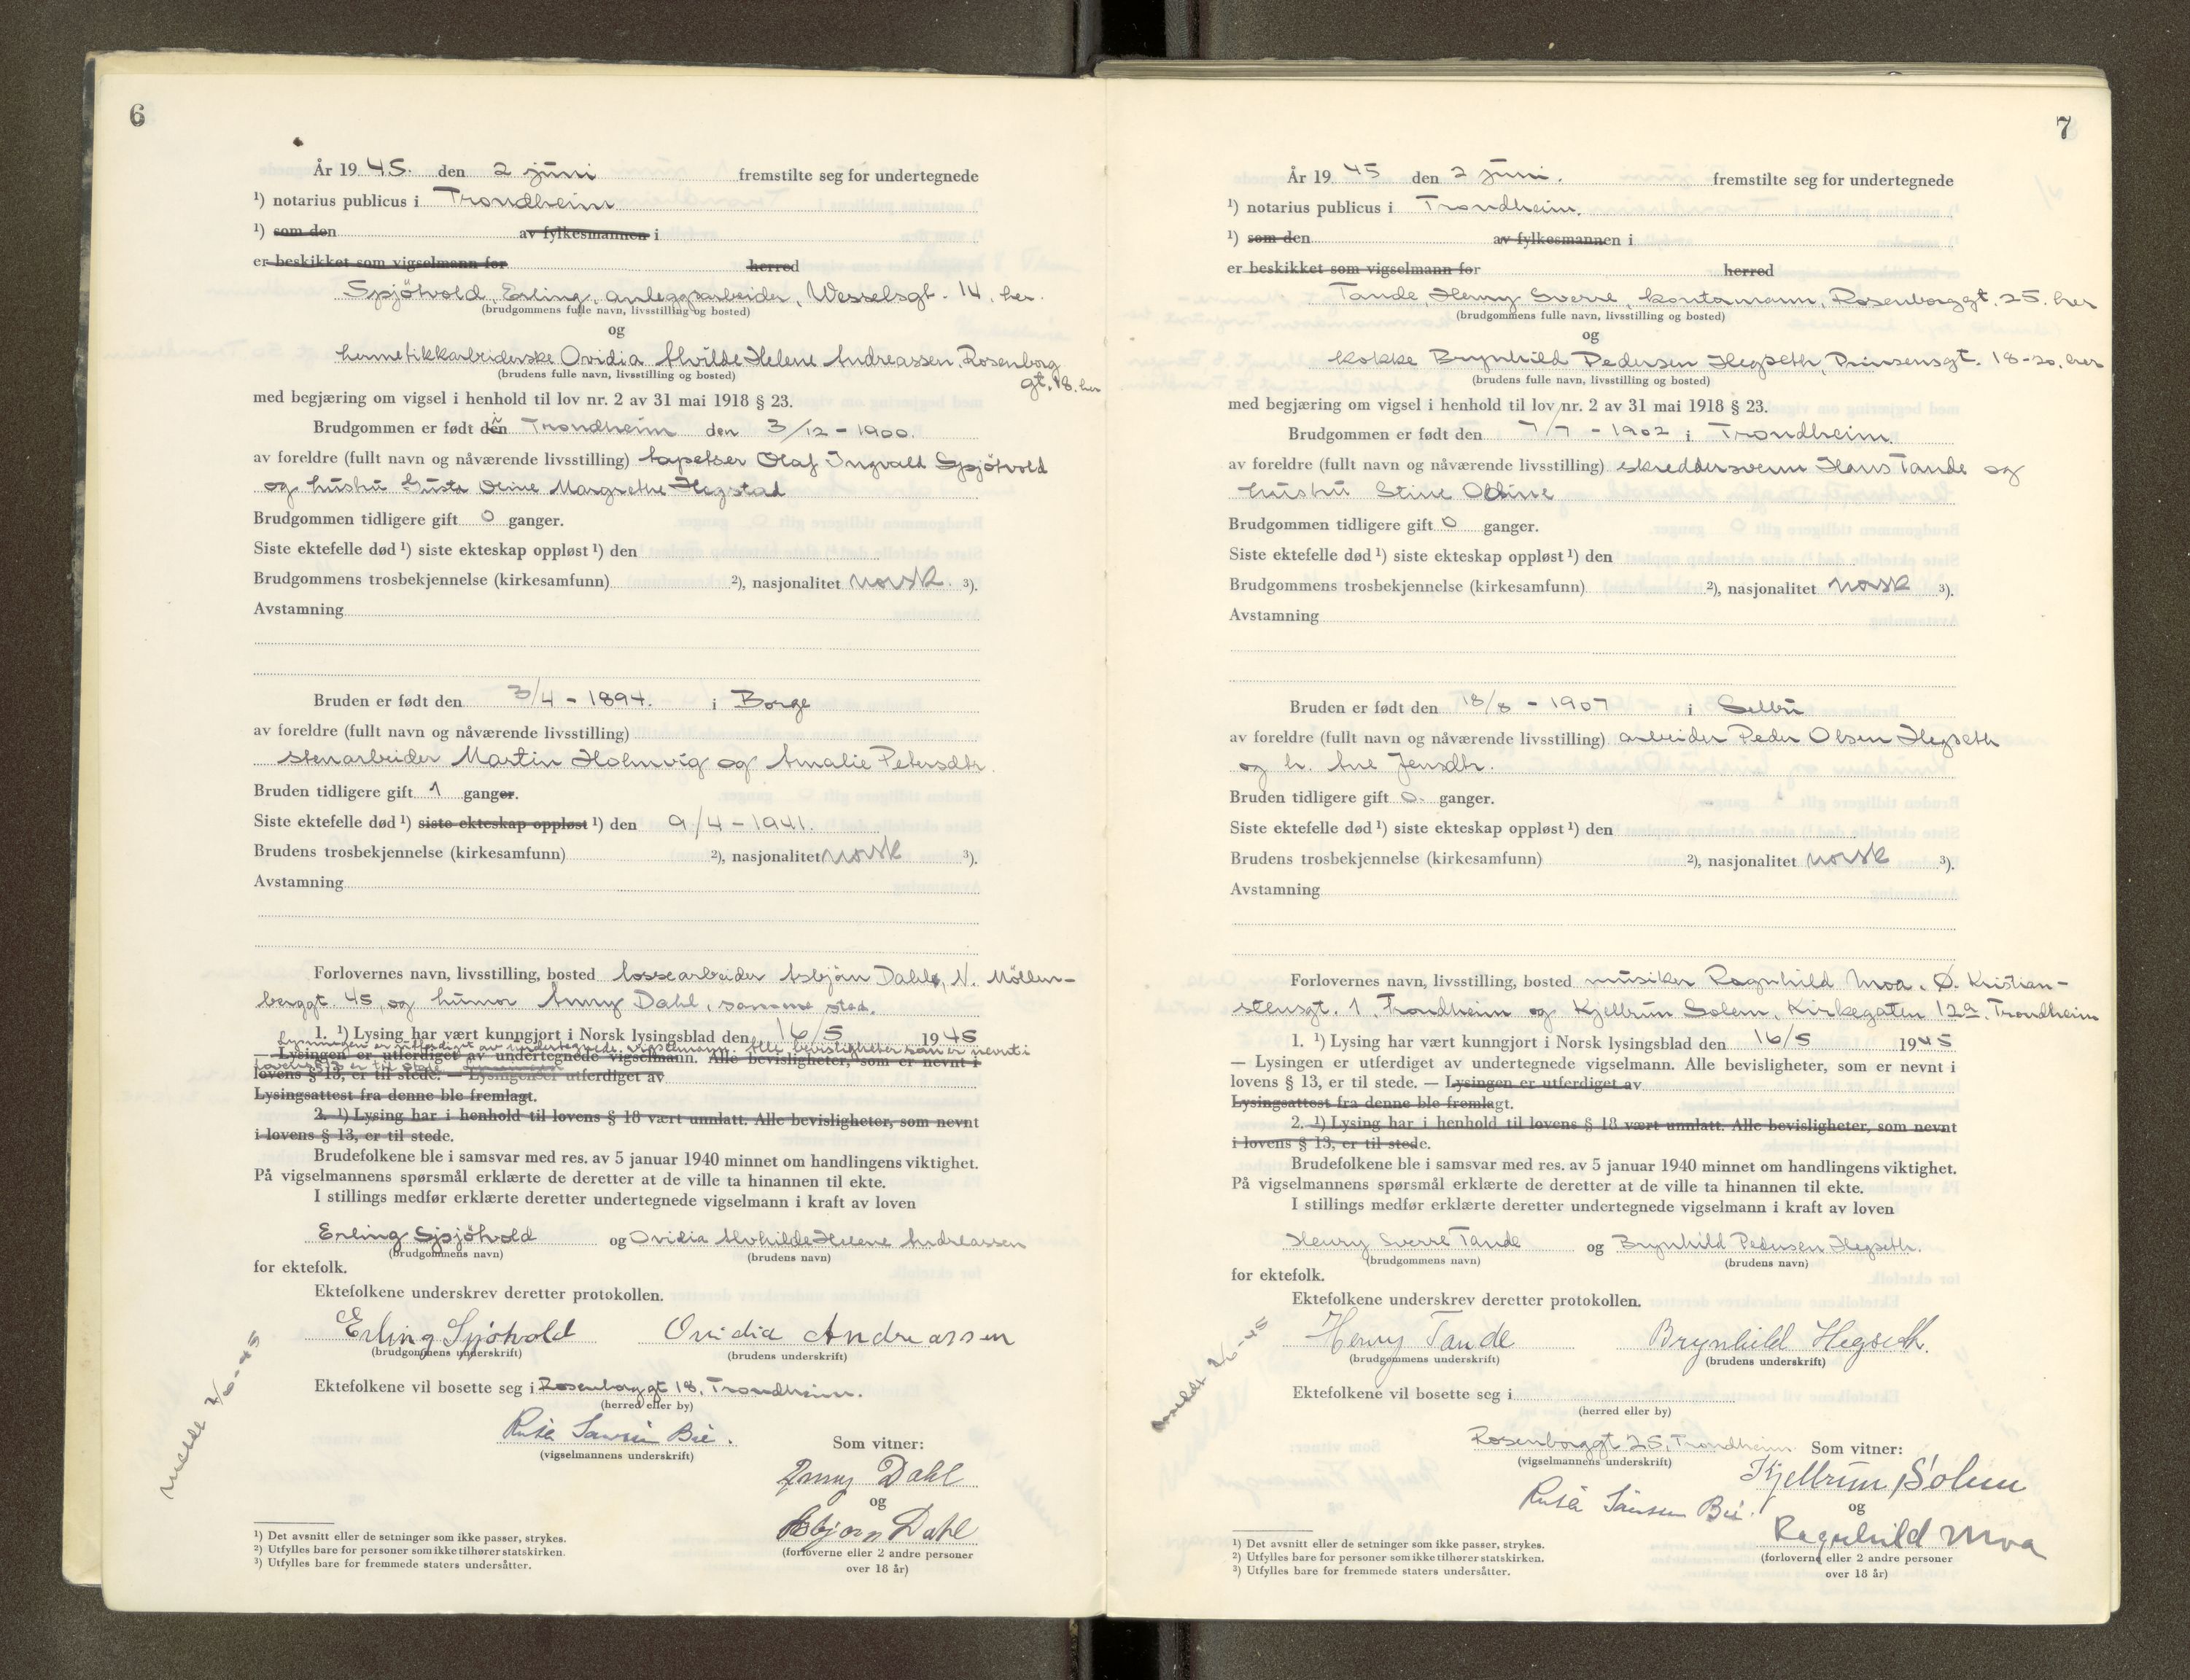 6
År 1945. den 2 juni fremstilte seg for undertegnede
¹) notarius publicus i Trondheim
¹) som den av fylkesmannen i
er beskikket som vigselmann for herred
Spjötvold, Erling, anleggsarbeider, Wesselsgt. 14, her.
(brudgommens fulle navn, livsstilling og bosted)
og
hermetikkarbeiderske Ovidia Alvilde Helene Andreassen, Rosenborg
gt. 18. her
(brudens fulle navn, livsstilling og bosted)
med begjæring om vigsel i henhold til lov nr. 2 av 31 mai 1918 § 23.
Brudgommen er født i Trondheim den 3/12 - 1900.
av foreldre (fullt navn og nåværende livsstilling) tapetser Olaf Ingvald Spjötvold
og hustru Gusta Oline Margrethe Hegstad
Brudgommen tidligere gift 0 ganger.
Siste ektefelle død ¹) siste ekteskap oppløst ¹) den
Brudgommens trosbekjennelse (kirkesamfunn) ²), nasjonalitet norsk. ³).
Avstamning
Bruden er født den 3/4 - 1894. i Borge
av foreldre (fullt navn og nåværende livsstilling)
stenarbeider Martin Holmvig og Amalie Petersdtr.
Bruden tidligere gift 1 ganger.
Siste ektefelle død ¹) siste ekteskap oppløst ¹) den 9/4 - 1941.
Brudens trosbekjennelse (kirkesamfunn) ²), nasjonalitet norsk ³).
Avstamning
Forlovernes navn, livsstilling, bosted lossearbeider Asbjörn Dahl, N. Möllen-
berggt. 45, og humor Anny Dahl, samme sted.
1. ¹) Lysing har vært kunngjort i Norsk lysingsblad den 16/5 1945
Lysningen er utferdiget av undertegnede vigselmann. Alle bevisligheter som er nevnt i
— Lysingen er utferdiget av undertegnede vigselmann. Alle bevisligheter, som er nevnt i
lovens § 13 er til stede.
lovens § 13, er til stede. — Lysingen er utferdiget av
Lysingsattest fra denne ble fremlagt.
2. ¹) Lysing har i henhold til lovens § 18 vært unnlatt. Alle bevisligheter, som nevnt
i lovens § 13, er til stede.
Brudefolkene ble i samsvar med res. av 5 januar 1940 minnet om handlingens viktighet.
På vigselmannens spørsmål erklærte de deretter at de ville ta hinannen til ekte.
I stillings medfør erklærte deretter undertegnede vigselmann i kraft av loven
Erling Spjötvold og Ovidia Alvhilde Helene Andreassen
(brudgommens navn) (brudens navn)
for ektefolk.
Ektefolkene underskrev deretter protokollen.
Erling Spjötvold Ovidia Andreassen
(brudgommens underskrift) (brudens underskrift)
Ektefolkene vil bosette seg i Rosenborggt 18, Trondheim.
(herred eller by)
meldt 2/6-45
(vigselmannens underskrift)
Som vitner:
Anny Dahl
og
Asbjørn Dahl
(forloverne eller 2 andre personer
over 18 år)
¹) Det avsnitt eller de setninger som ikke passer, strykes.
²) Utfylles bare for personer som ikke tilhører statskirken.
³) Utfylles bare for fremmede staters undersåtter.
7
År 1945 den 2 juni. fremstilte seg for undertegnede
¹) notarius publicus i Trondheim.
¹) som den av fylkesmannen i
er beskikket som vigselmann for herred
Tande, Henry Sverre, kontormann, Rosenborggt. 25. her
(brudgommens fulle navn, livsstilling og bosted)
og
kokke Brynhild Pedersen Hegseth, Prinsensgt. 18-20, her
(brudens fulle navn, livsstilling og bosted)
med begjæring om vigsel i henhold til lov nr. 2 av 31 mai 1918 § 23.
Brudgommen er født den 7/7 - 1902 i Trondheim
av foreldre (fullt navn og nåværende livsstilling) skreddersvenn Hans Tande og
hustru Stine Oline
Brudgommen tidligere gift 0 ganger.
Siste ektefelle død ¹) siste ekteskap oppløst ¹) den
Brudgommens trosbekjennelse (kirkesamfunn) ²), nasjonalitet norsk ³).
Avstamning
Bruden er født den 18/8 - 1907 i Selbu
av foreldre (fullt navn og nåværende livsstilling) arbeider Peder Olsen Hegseth
og h. Ane Jensdtr.
Bruden tidligere gift 0. ganger.
Siste ektefelle død ¹) siste ekteskap oppløst ¹) den
Brudens trosbekjennelse (kirkesamfunn) ²), nasjonalitet norsk ³).
Avstamning
Forlovernes navn, livsstilling, bosted musiker Ragnhild Moa, Ø. Kristian-
stensgt. 1, Trondheim og Kjellrun Solem, Kirkegaten 12a, Trondheim
1. ¹) Lysing har vært kunngjort i Norsk lysingsblad den 16/5 1945
— Lysingen er utferdiget av undertegnede vigselmann. Alle bevisligheter, som er nevnt i
lovens § 13, er til stede. — Lysingen er utferdiget av
Lysingsattest fra denne ble fremlagt.
2. ¹) Lysing har i henhold til lovens § 18 vært unnlatt. Alle bevisligheter, som nevnt
i lovens § 13, er til stede.
Brudefolkene ble i samsvar med res. av 5 januar 1940 minnet om handlingens viktighet.
På vigselmannens spørsmål erklærte de deretter at de ville ta hinannen til ekte.
I stillings medfør erklærte deretter undertegnede vigselmann i kraft av loven
Henry Sverre Tande og Brynhild Pedersen Hegseth.
(brudgommens navn) (brudens navn)
for ektefolk.
Ektefolkene underskrev deretter protokollen.
Henry Tande Brynhild Hegseth.
(brudgommens underskrift) (brudens underskrift)
meldt 2/6-45
Ektefolkene vil bosette seg i
(herred eller by)
Rosenborggt 25, Trondheim Som vitner:
(vigselmannens underskrift)
Kjellrun Solem
og
Ragnhild Moa
(forloverne eller 2 andre personer
over 18 år)
¹) Det avsnitt eller de setninger som ikke passer, strykes.
²) Utfylles bare for personer som ikke tilhører statskirken.
³) Utfylles bare for fremmede staters undersåtter.